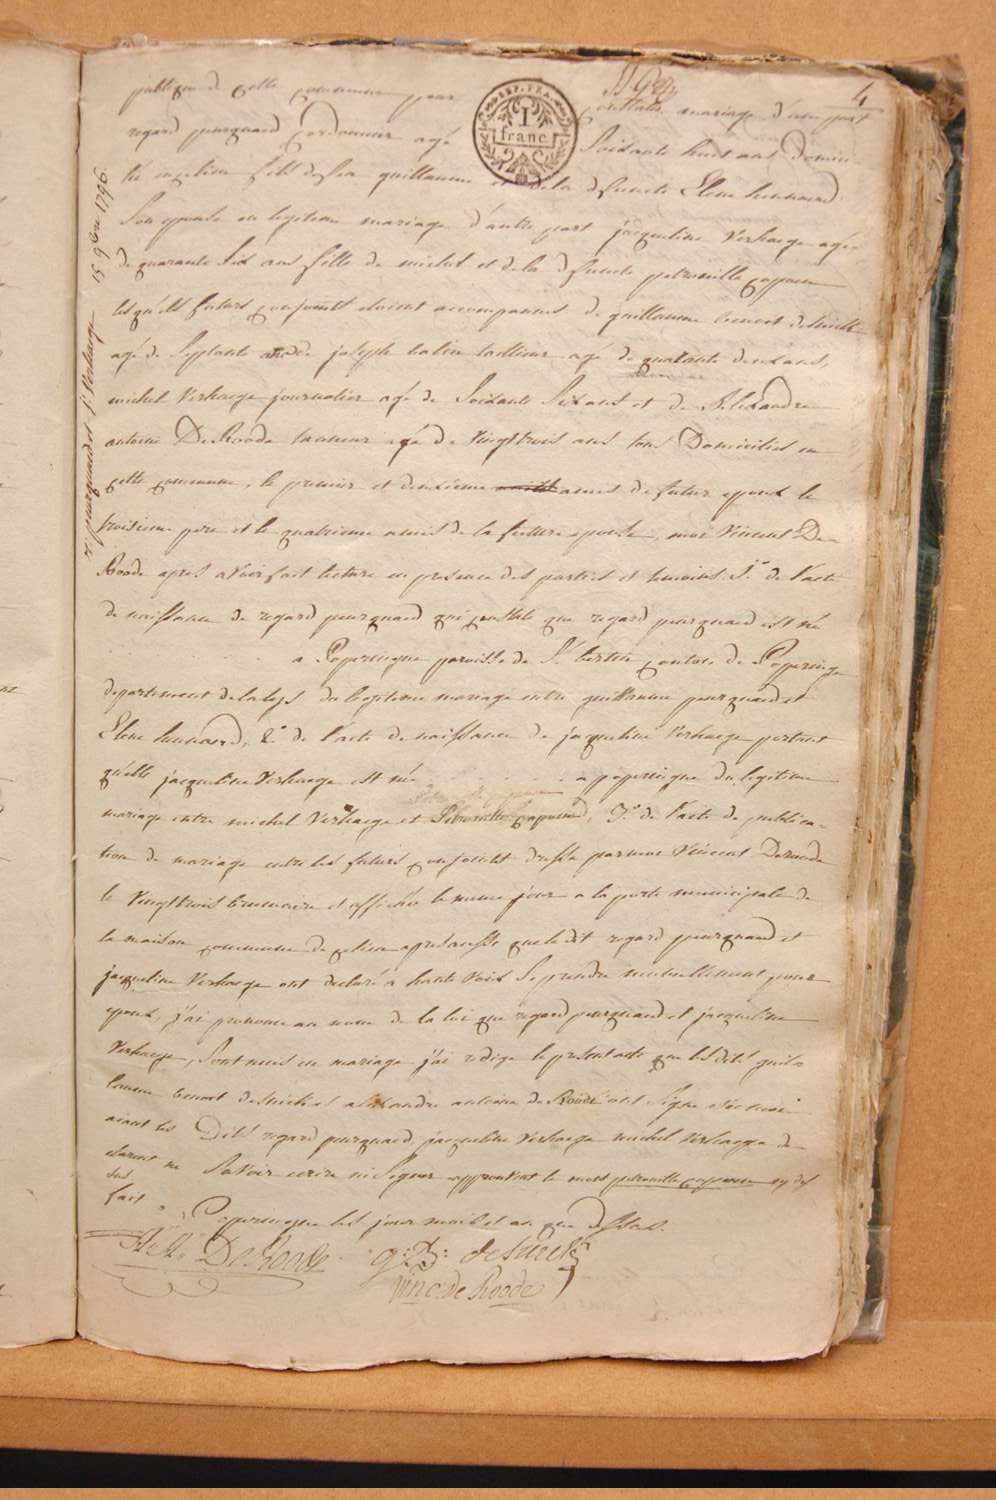 4
REP. FRA.
1
franc
publique de cette commune pour constater mariage d'une part
regard pourquaed cordonnier agé Soixante huit ans Domici-
lié en celieu fils de feu guillaume et de la defuncte Elene hennaerd
Son epouse en legitime mariage, d'autre part jacqueline Verhaege agée
de quarante Six ans fille de michel et de la defuncte petronille cappoen
lesquels futurs conjoints etoient accompagnés de guillaume benoit desmidt
agé de Septante de joseph tailleur agé de quarante deux ans,
michel Verhaege journalier agé de Soixante Six ans et de Alexandre
antoine De Roode tanneur agé de Vingt trois ans tous Domiciliés en
cette commune, le premier et deuxieme amis de futur epoux le
troisieme pere et le quatrieme amis de la future epouse, moi Vincent De
Roode apres avoir fait lecture en presence des parties et temoins 1° de l'acte
de naissance de regard pourquaed qui constate que regard pourquaed est né
a Poperingue paroisse de St bertin canton de Poperinge
departement de la lys du legitime mariage entre guillaume pourquaed et
Elene hennaerd, 2° de l'acte de naissance de jacqueline Verhaege portant
qu'elle jacqueline Verhaege est née a poperingue du legitime
mariage entre michel Verhaege et Petronille Cappoen, 3° de l'acte de publica-
tion de mariage entre les futurs conjoints dressé par moi Vincent Deroode
le Vingt trois brumaire et affiché le meme jour a la porte municipale de
la maison commune de celieu apres que ledit regard pourquaed et
jacqueline Verhaege ont declaré a haute Voix Se prendre mutuellement pour
epoux, j'ai prononcé au nom de la loi que regard pourquaed et jacqueline
Verhaege, Sont unis en mariage j'ai redigé le present acte que lesdits guil-
laume benoit desmidt et alexandre antoine de Roode ont Signé avec moi
aiant les Dits regard pourquaed jacqueline Verhaege michel Verhaege de-
clarent ne Savoir ecrire ni Signer approuvant le mot petronille cappoen
fait Poperingue les jour mois et an que dessus.
De Roode g: B: desmidt
Vinc. de Roode
r. pourquaedt j. Verhaege